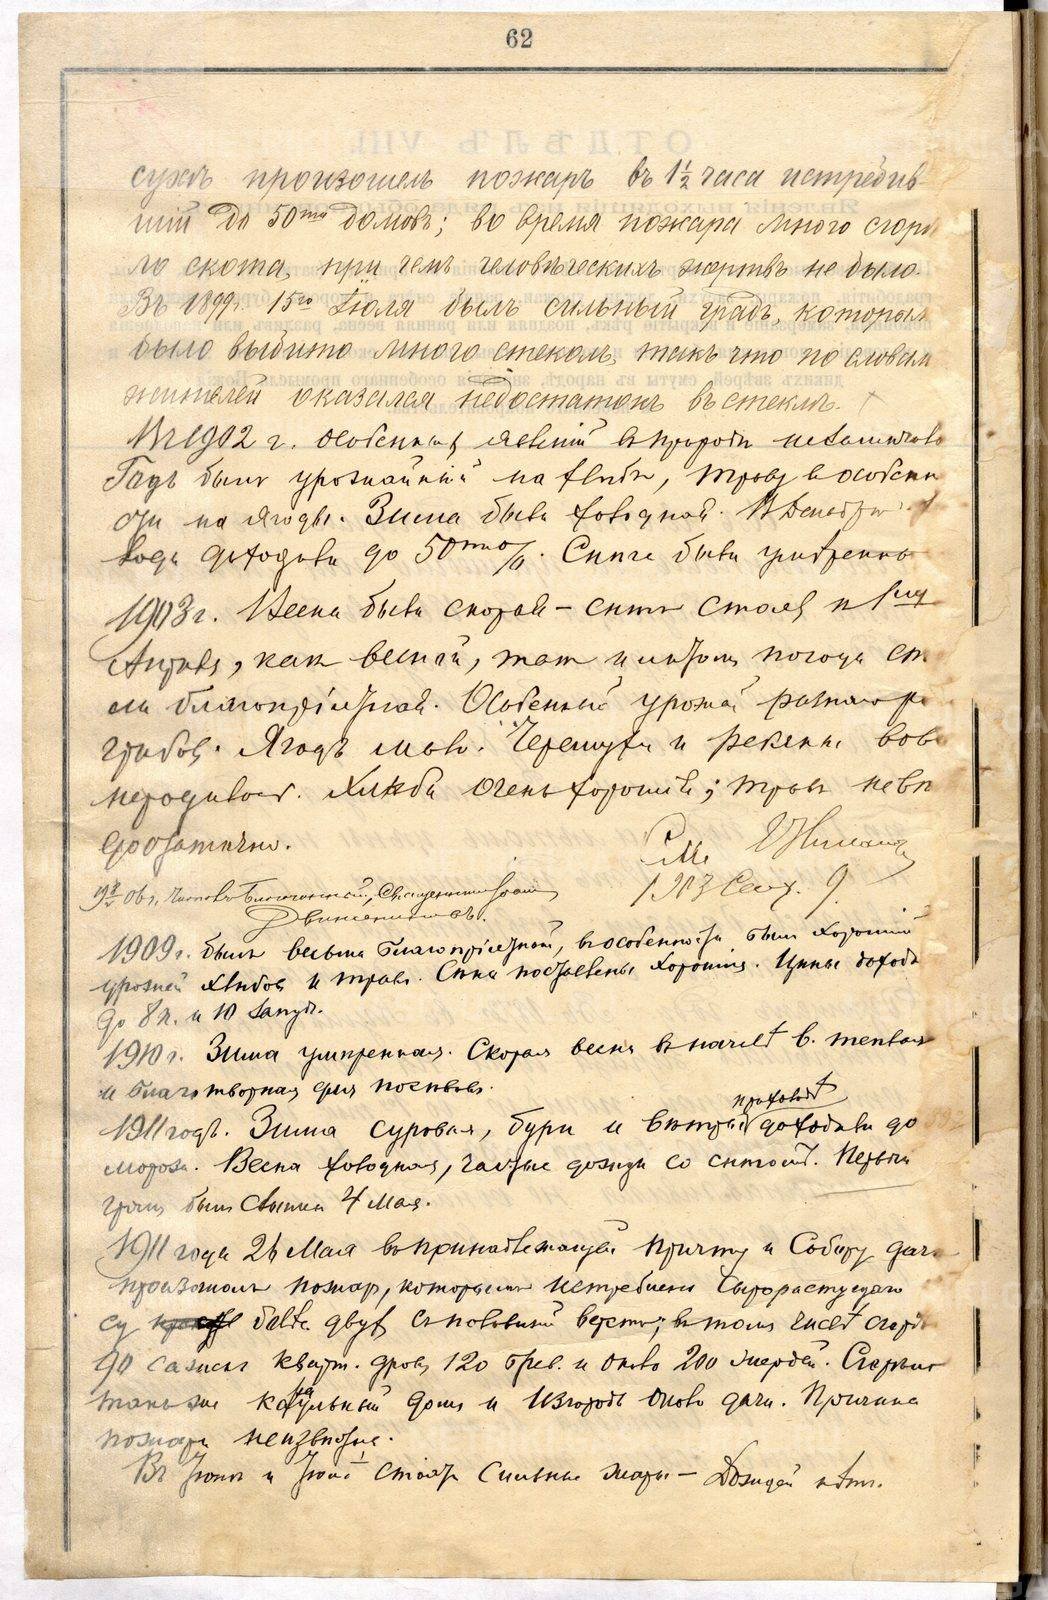 62
сухъ произошелъ пожаръ въ 1½ часа истребив-
шій до 50ти домовъ; во время пожара много сгорѣ
ло скота, при чемъ человѣческихъ жертвъ не было.
Въ 1899 г. 15го Іюля былъ сильный градъ, которымъ
было выбито много стеколъ, такъ что по словамъ
жителей оказался недостатокъ въ стеклѣ.
Въ 1902 г. особенныхъ явленій въ природѣ не замѣчено
Годъ былъ урожайный на хлѣбъ, траву и особенн
о на ягоды. Зима была холодной. Въ Декабрѣ
доходили до 50ти %. Снега были умѣренны
1903 г. Весна была скорая – снѣгъ стаялъ къ 1му
Апрѣля, какъ весной, такъ и лѣтомъ погода
благопріятной. Особенный урожай
грибовъ. Ягодъ мало. Черемуха и рѣпны вов
не родилось. Хлѣба очень хорошій; травъ не вп
достаточно.
1903 Сент. 9.
Благочинный, Священникъ
1909 г. былъ весьма благопріятный, въ особенности былъ хорошій
урожай хлѣбовъ и травъ. Сѣна поставлены хорошія. Цѣны доход
до 8 к. и 10 за пудъ.
1910 г. Зима умѣренная. Скорая весна въ началѣ б. теплая
и благотворная для посѣвовъ.
1911 годъ. Зима суровая, бури и вѣтры доходили до
мороза. Весна холодная, частые дожди со снѣгомъ. Первый
громъ былъ слышенъ 4 Мая.
1911 года 26 Мая въ принадлежащей Причту и Собору дачѣ
произошолъ пожаръ, которымъ истреблено сырорастущаго
лѣса двухъ съ половиной верстъ; въ томъ числѣ сгорѣло
до сажень кварт. дровъ, 120 брев. и около 200 жердей. Сгорѣло
также караульный домъ и изгородь около дачи. Причина
пожара неизвѣстна.
Въ Іюнѣ и Іюлѣ стоятъ сильные жары – Дождей нѣтъ.